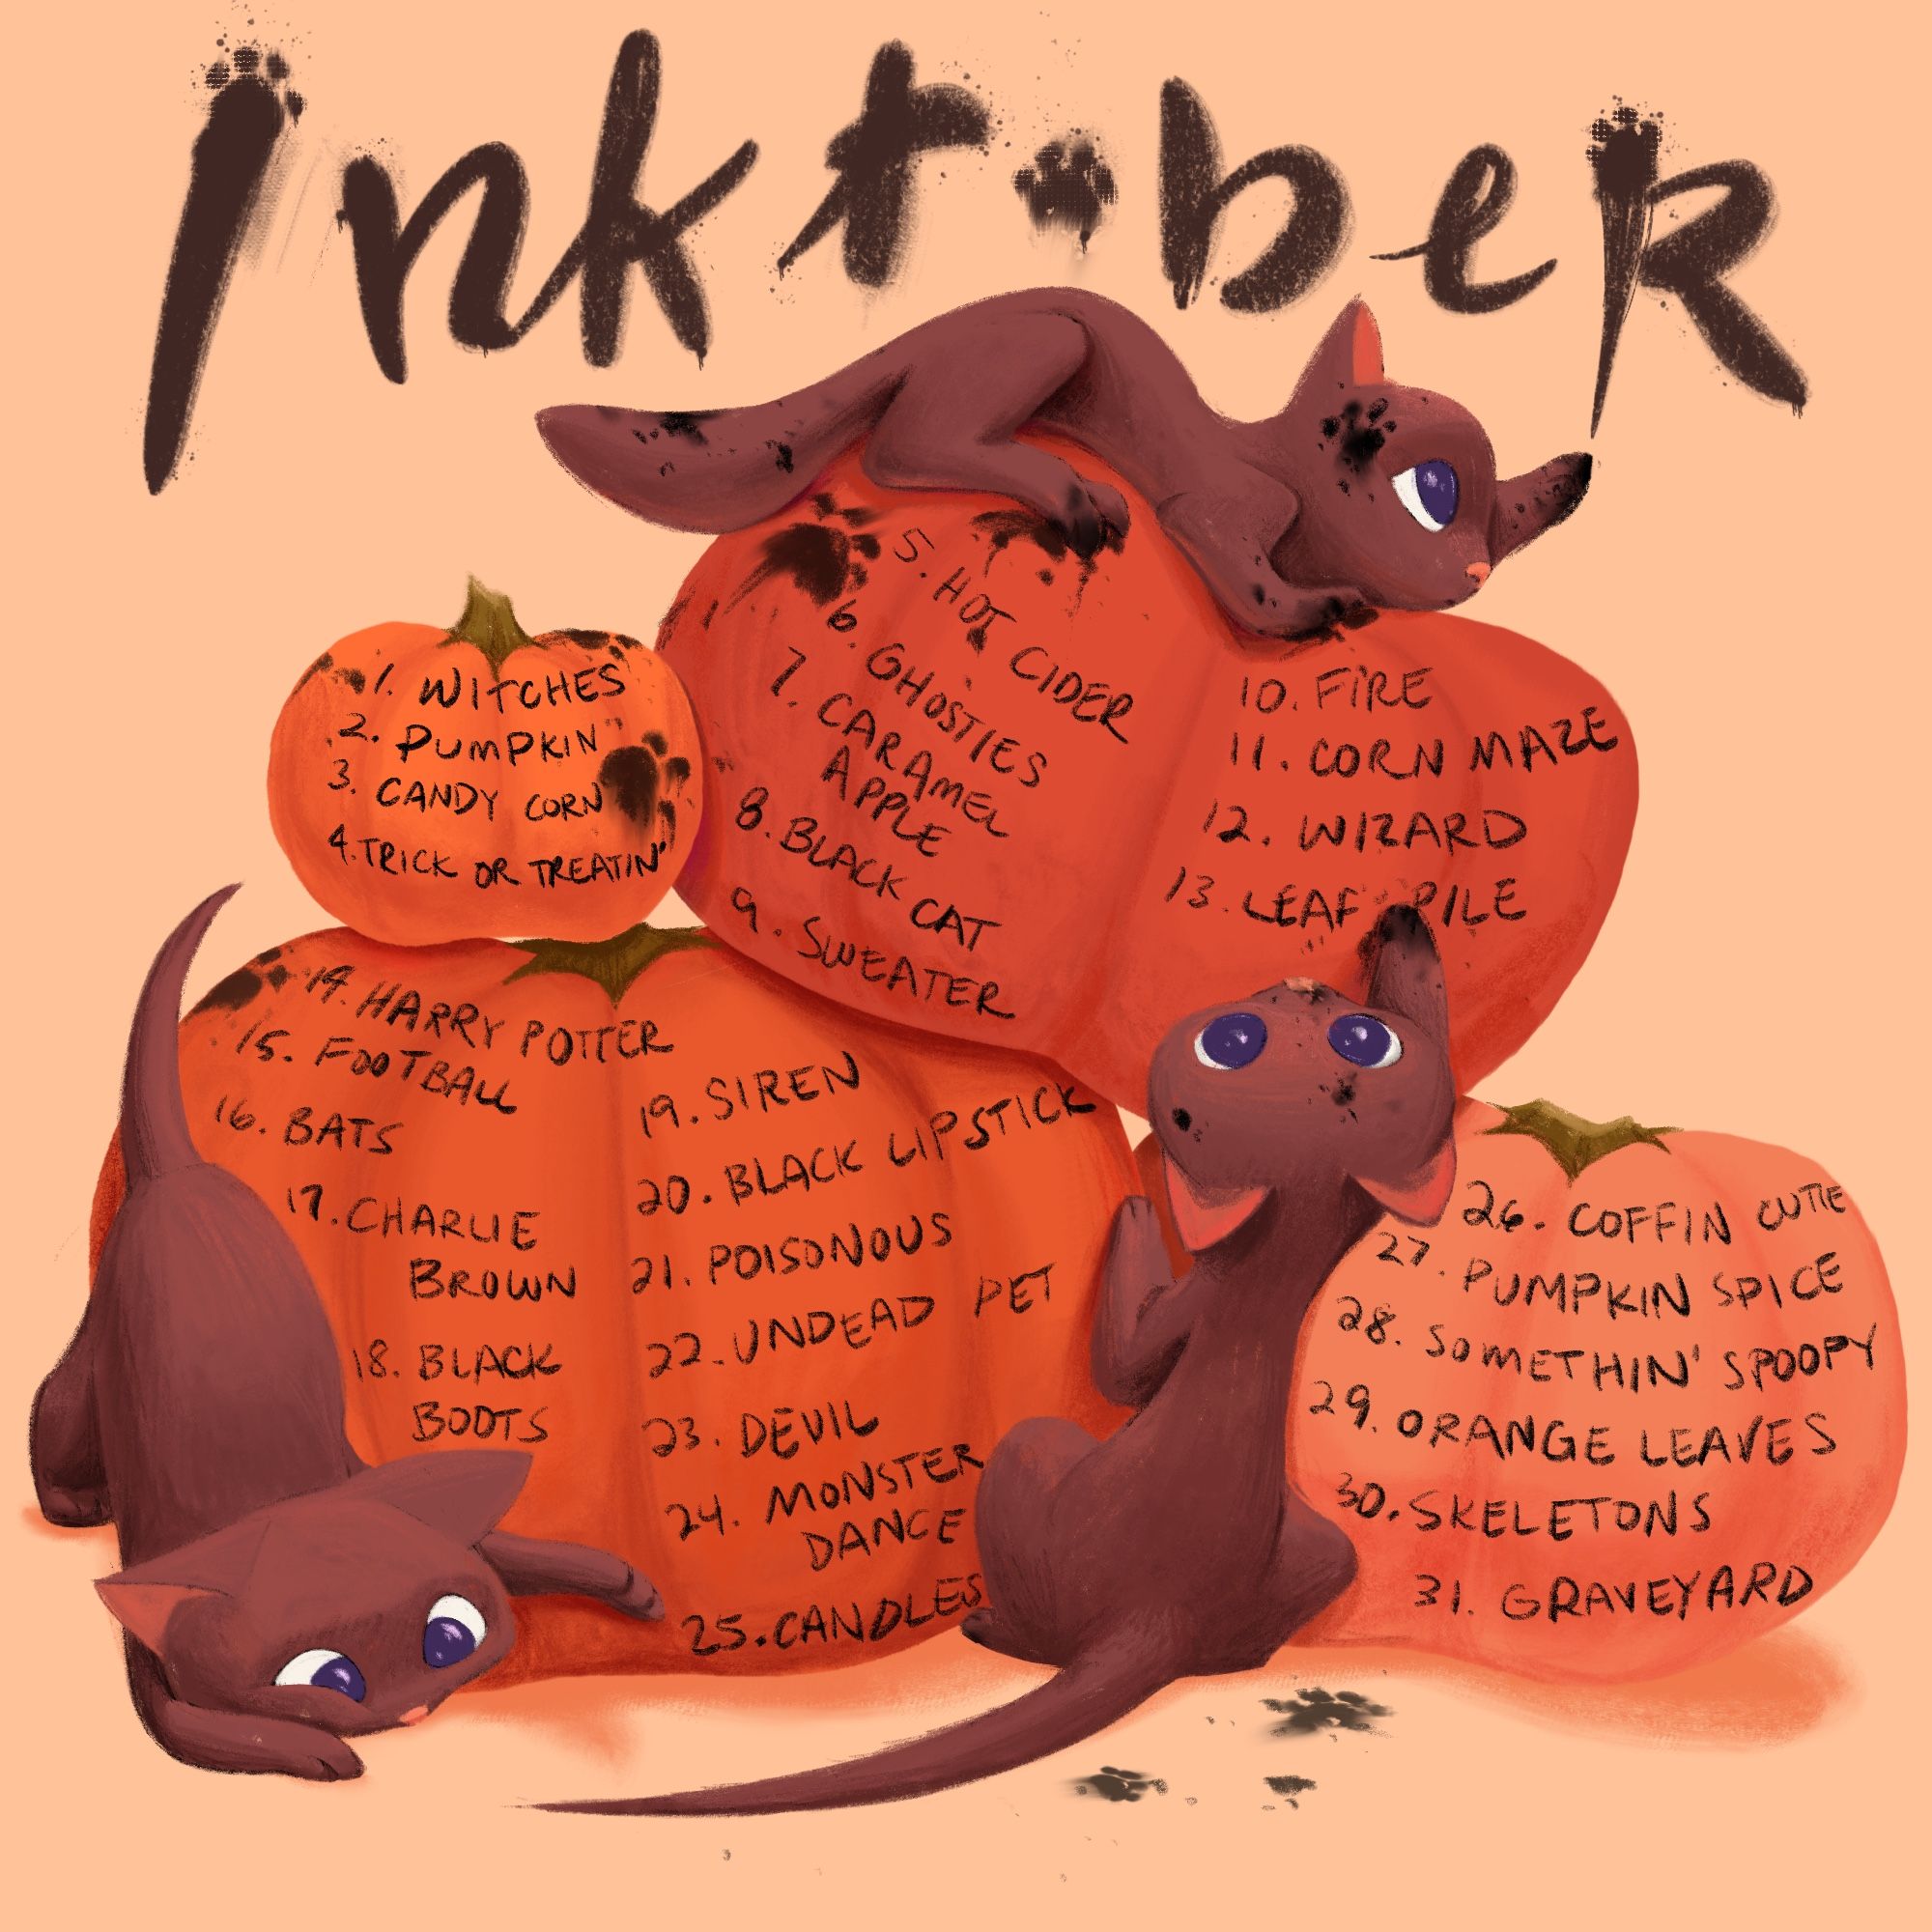 Inktober
1. WITCHES
2. PUMPKIN
3. CANDY CORN
4. TRICK OR TREATIN'
5. HOT CIDER
6. GHOSTIES
7. CARAMEL
APPLE
8. BLACK CAT
9. SWEATER
10. FIRE
11. CORN MAZE
12. WIZARD
13. LEAF PILE
14. HARRY POTTER
15. FOOTBALL
16. BATS
17. CHARLIE
BROWN
18. BLACK
BOOTS
19. SIREN
20. BLACK LIPSTICK
21. POISONOUS
22. UNDEAD PET
23. DEVIL
24. MONSTER
DANCE
25. CANDLES
26. COFFIN CUTIE
27. PUMPKIN SPICE
28. SOMETHIN' SPOOPY
29. ORANGE LEAVES
30. SKELETONS
31. GRAVEYARD